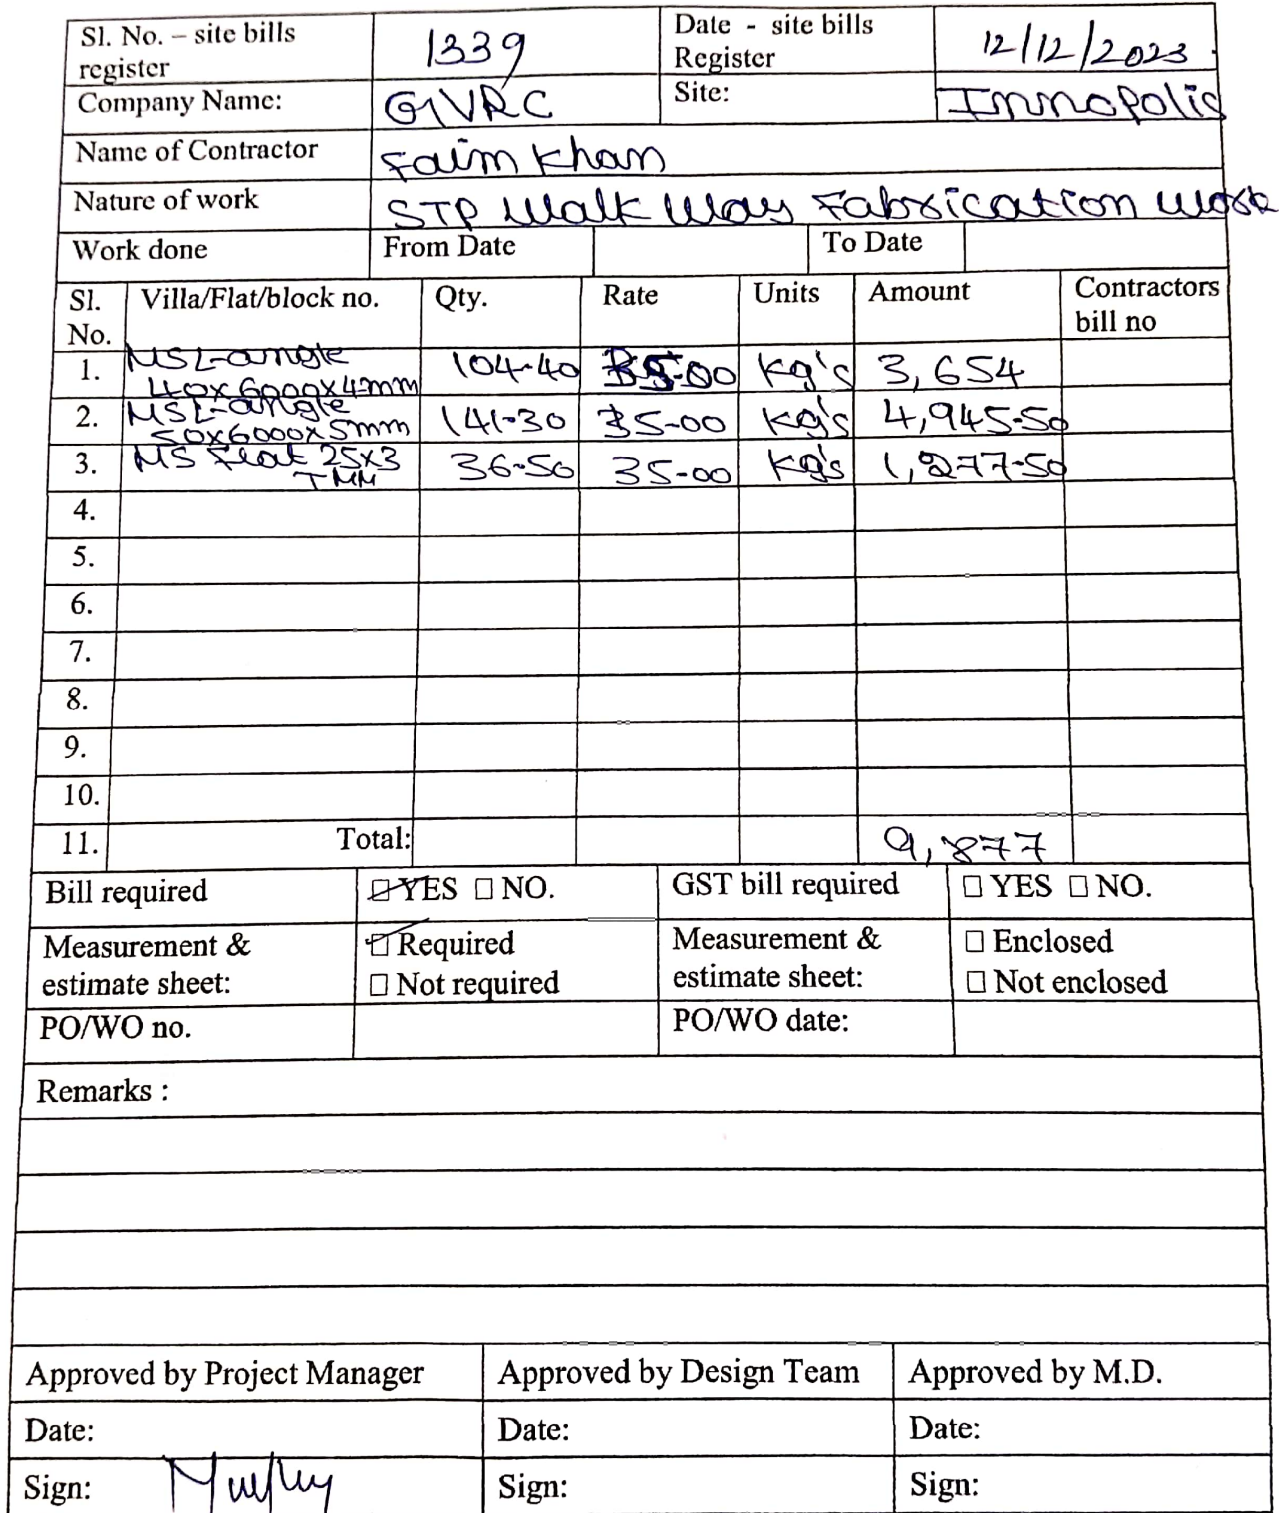 Sl. No. – site bills register 1339 Date - site bills Register 12/12/2023
Company Name: GVRC Site: Innopolis
Name of Contractor Faim Khan
Nature of work STP Walk Way Fabrication work
Work done From Date To Date
Sl. No. Villa/Flat/block no. Qty. Rate Units Amount Contractors bill no
1. MS L-angle 40x6000x4mm 104-40 35-00 Kg's 3,654
2. MS L-angle 50x6000x5mm 141-30 35-00 Kg's 4,945-50
3. MS Flat 25x3 MM 36-50 35-00 Kg's 1,277-50
4.
5.
6.
7.
8.
9.
10.
11. Total: 9,877
Bill required ☑ YES □ NO. GST bill required □ YES □ NO.
Measurement & estimate sheet: ☑ Required □ Not required Measurement & estimate sheet: □ Enclosed □ Not enclosed
PO/WO no. PO/WO date:
Remarks :
Approved by Project Manager Approved by Design Team Approved by M.D.
Date: Date: Date:
Sign: Sign: Sign: